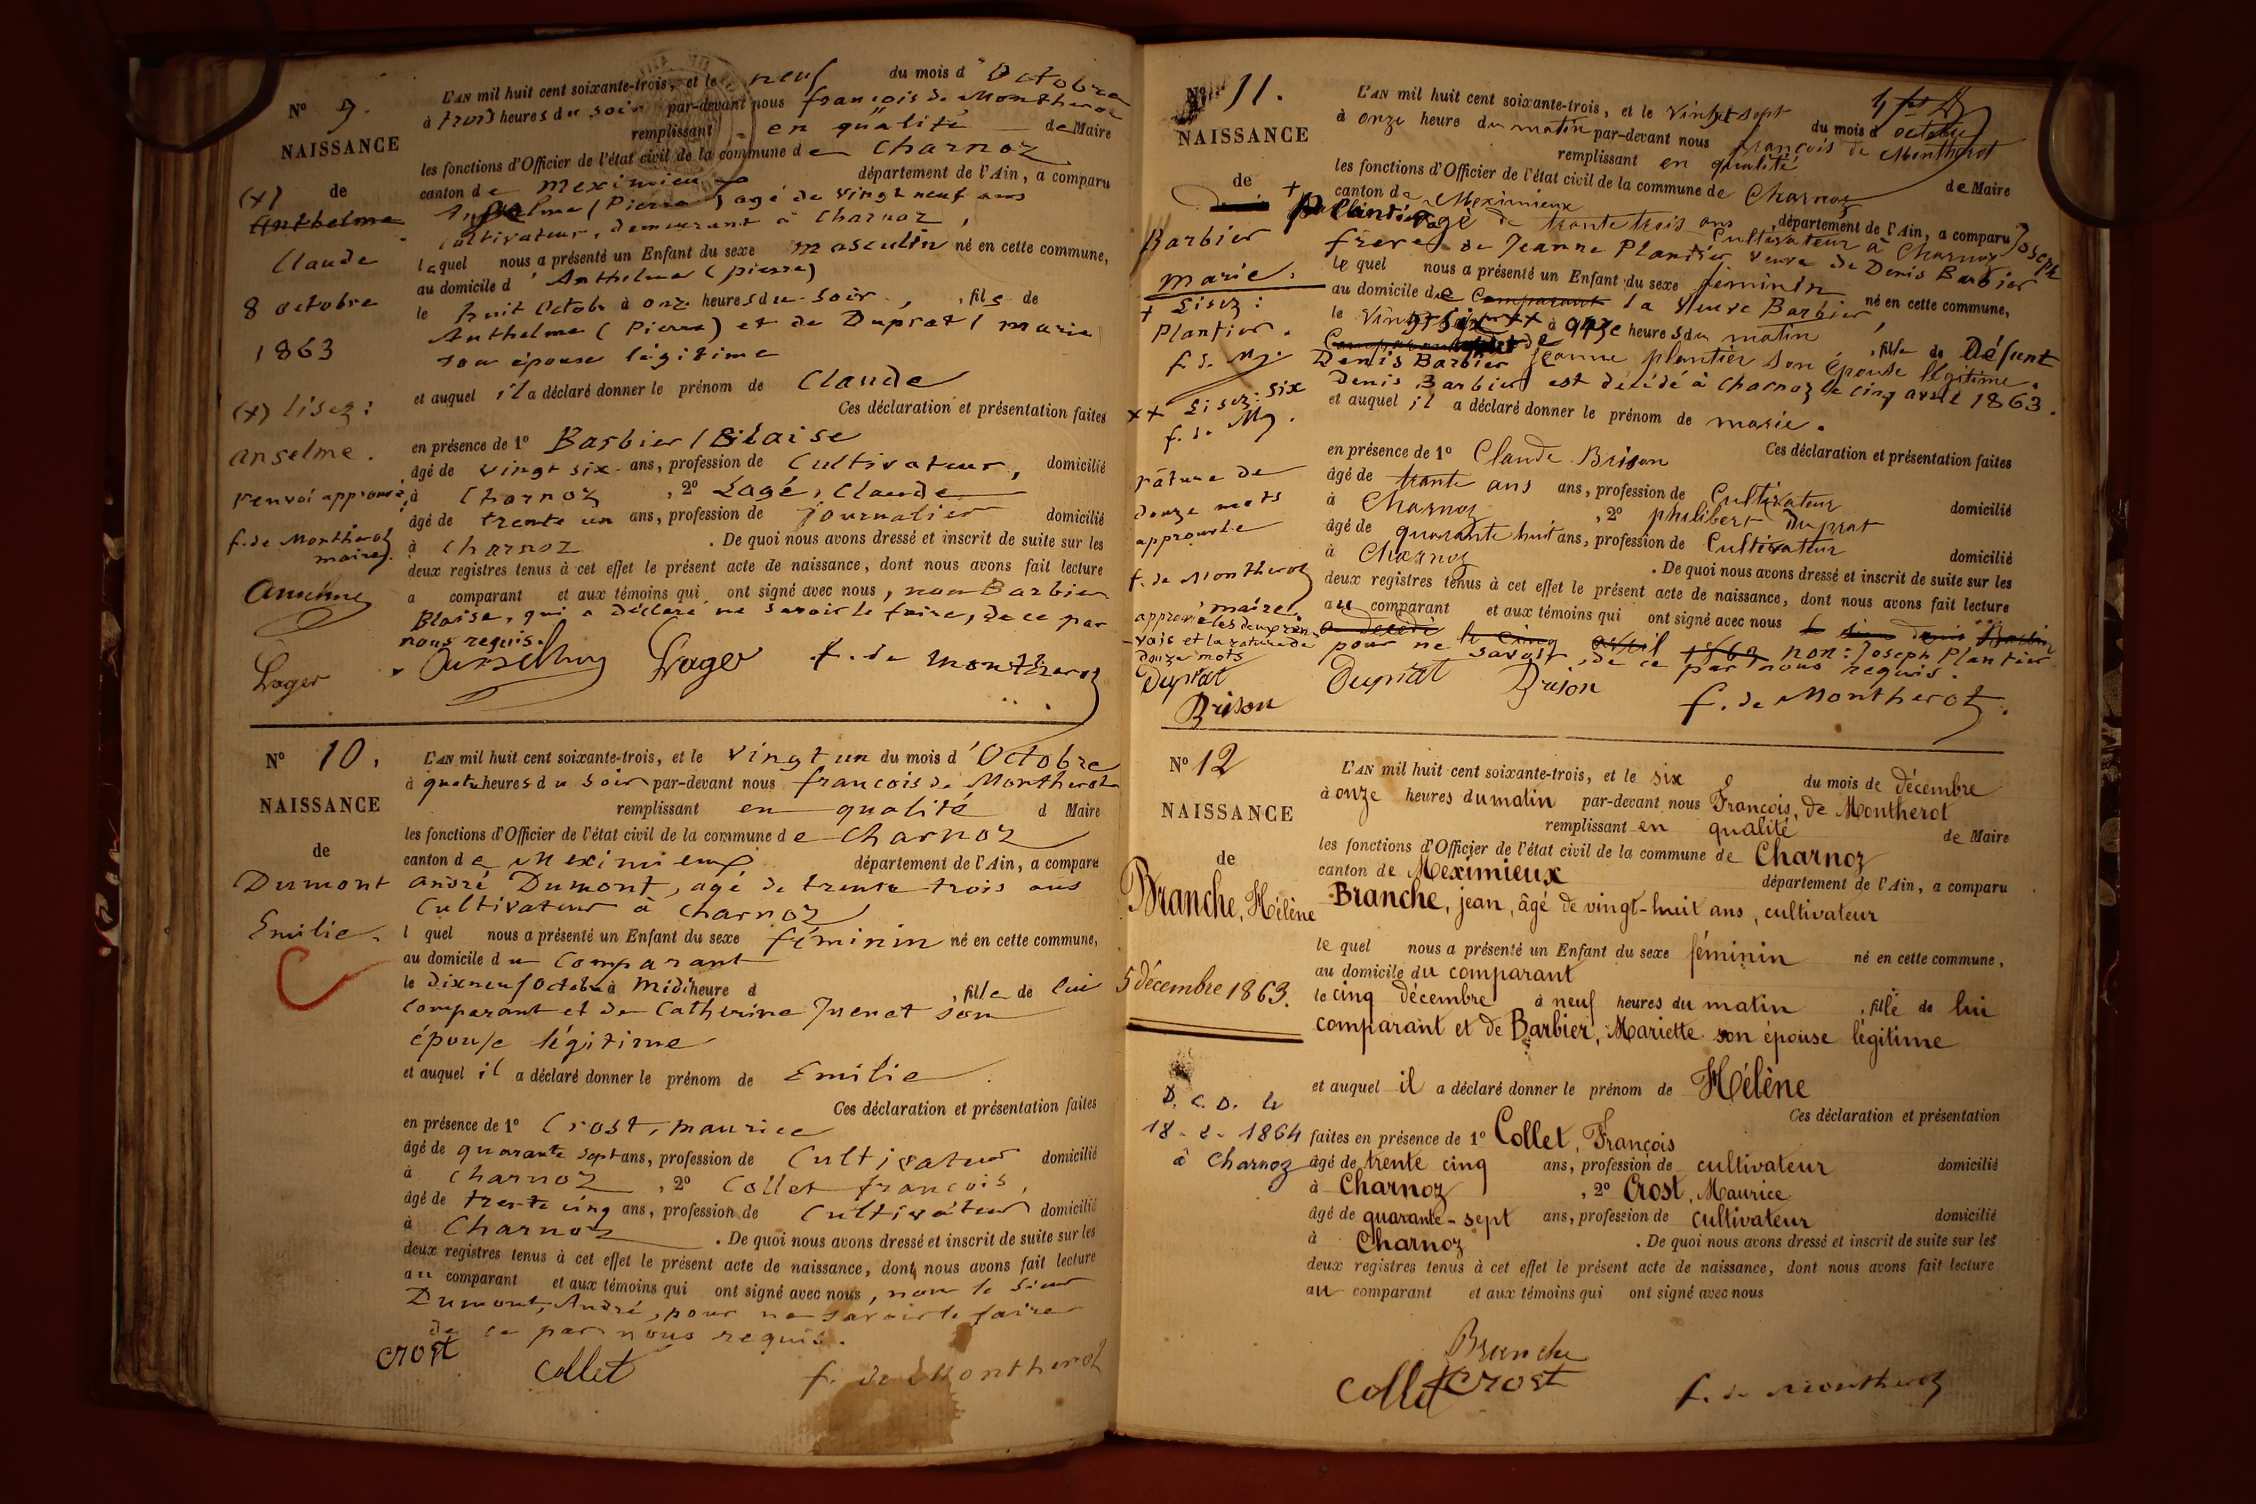 N° 9.
NAISSANCE
de
(x)
Anthelme
Claude
8 octobre
1863
(x) lisez :
anselme.
renvoi approuvé,
f. de Montherot
maire.
Lager
L'AN mil huit cent soixante-trois, et le neuf du mois d'Octobre
à trois heures du soir par-devant nous françois de Montherot
remplissant en qualité de Maire
les fonctions d'Officier de l'état civil de la commune de Charnoz
canton de meximieux département de l'Ain, a comparu
(Pierre) agé de vingt neuf ans
cultivateur, demeurant à Charnoz,
lequel nous a présenté un Enfant du sexe masculin né en cette commune,
au domicile d'Anthelme (pierre)
le huit Octobre à onze heures du soir, fils de
Anthelme (Pierre) et de Duprat (marie
son épouse légitime
et auquel il a déclaré donner le prénom de Claude
Ces déclaration et présentation faites
en présence de 1° Barbier (Blaise
âgé de vingt six ans, profession de Cultivateur, domicilié
à Charnoz, 2° Lagé, Claude
âgé de trente un ans, profession de journalier domicilié
à Charnoz. De quoi nous avons dressé et inscrit de suite sur les
deux registres tenus à cet effet le présent acte de naissance, dont nous avons fait lecture
a comparant et aux témoins qui ont signé avec nous, non Barbier
Blaise, qui a déclaré ne savoir le faire, de ce par
nous requis.
Lager f. de Montherot
N° 10.
NAISSANCE
de
Dumont
Emilie.
L'AN mil huit cent soixante-trois, et le vingt un du mois d'Octobre
à quatre heures du soir par-devant nous françois de Montherot
remplissant en qualité d Maire
les fonctions d'Officier de l'état civil de la commune de Charnoz
canton de Meximieux département de l'Ain, a comparu
André Dumont, agé de trente trois ans
Cultivateur à Charnoz
l quel nous a présenté un Enfant du sexe féminin né en cette commune,
au domicile du Comparant
le dixneuf Octobre à Midi heure d , fille de lui
comparant et de Catherine son
épouse légitime
et auquel il a déclaré donner le prénom de Emilie.
Ces déclaration et présentation faites
en présence de 1° Crost, maurice
âgé de quarante sept ans, profession de Cultivateur domicilié
à Charnoz, 2° Collet françois,
âgé de trente cinq ans, profession de Cultivateur domicilié
à Charnoz. De quoi nous avons dressé et inscrit de suite sur les
deux registres tenus à cet effet le présent acte de naissance, dont nous avons fait lecture
au comparant et aux témoins qui ont signé avec nous, non le sieur
Dumont, André, pour ne savoir le faire
de ce par nous requis.
Crost Collet f. de Montherot
N° 11.
NAISSANCE
de
Barbier
marie.
+ Lisez :
Plantier.
f. de M.
++ Lisez : six
f. de M.
râture de
douze mots
approuvée
f. de Montherot
maire.
approuvé les deux ren
-vois et la rature de
douze mots
Duprat
Brison
L'AN mil huit cent soixante-trois, et le vingt sept du mois d'octobre
à onze heure du matin par-devant nous françois de Montherot
remplissant en qualité de Maire
les fonctions d'Officier de l'état civil de la commune de Charnoz
canton de Meximieux, département de l'Ain, a comparu Joseph
+ Plantier agé de trente trois ans Cultivateur à Charnoz
frère de Jeanne Plantier veuve de Denis Barbier
le quel nous a présenté un Enfant du sexe féminin né en cette commune,
au domicile de Comparant la veuve Barbier
le vingt six ++ à onze heures du matin, fille de Défunt
Denis Barbier Jeanne plantier son épouse légitime.
Denis Barbier est décédé à Charnoz le cinq avril 1863.
et auquel il a déclaré donner le prénom de marie.
Ces déclaration et présentation faites
en présence de 1° Claude Brison
âgé de trente ans ans, profession de Cultivateur domicilié
à Charnoz, 2° philibert Duprat
âgé de quarante huit ans, profession de Cultivateur domicilié
à Charnoz. De quoi nous avons dressé et inscrit de suite sur les
deux registres tenus à cet effet le présent acte de naissance, dont nous avons fait lecture
au comparant et aux témoins qui ont signé avec nous le sieur denis Barbier
a decedé le cinq avril 1863 non : Joseph Plantier
pour ne savoir, de ce par nous requis.
Duprat Brison f. de Montherot.
N° 12
NAISSANCE
de
Branche, Hélène
5 décembre 1863.
D. C. D. le
18 - 2 - 1864
à Charnoz
L'AN mil huit cent soixante-trois, et le six du mois de décembre
à onze heures du matin par-devant nous François, de Montherot
remplissant en qualité de Maire
les fonctions d'Officier de l'état civil de la commune de Charnoz
canton de Meximieux département de l'Ain, a comparu
Branche, jean, âgé de vingt-huit ans, cultivateur
le quel nous a présenté un Enfant du sexe féminin né en cette commune,
au domicile du comparant
le cinq décembre à neuf heures du matin, fille de lui
comparant et de Barbier, Mariette son épouse légitime
et auquel il a déclaré donner le prénom de Hélène
Ces déclaration et présentation
faites en présence de 1° Collet, François
âgé de trente cinq ans, profession de cultivateur domicilié
à Charnoz, 2° Crost, Maurice
âgé de quarante-sept ans, profession de cultivateur domicilié
à Charnoz. De quoi nous avons dressé et inscrit de suite sur les
deux registres tenus à cet effet le présent acte de naissance, dont nous avons fait lecture
au comparant et aux témoins qui ont signé avec nous
Branche
Collet Crost f. de Montherot